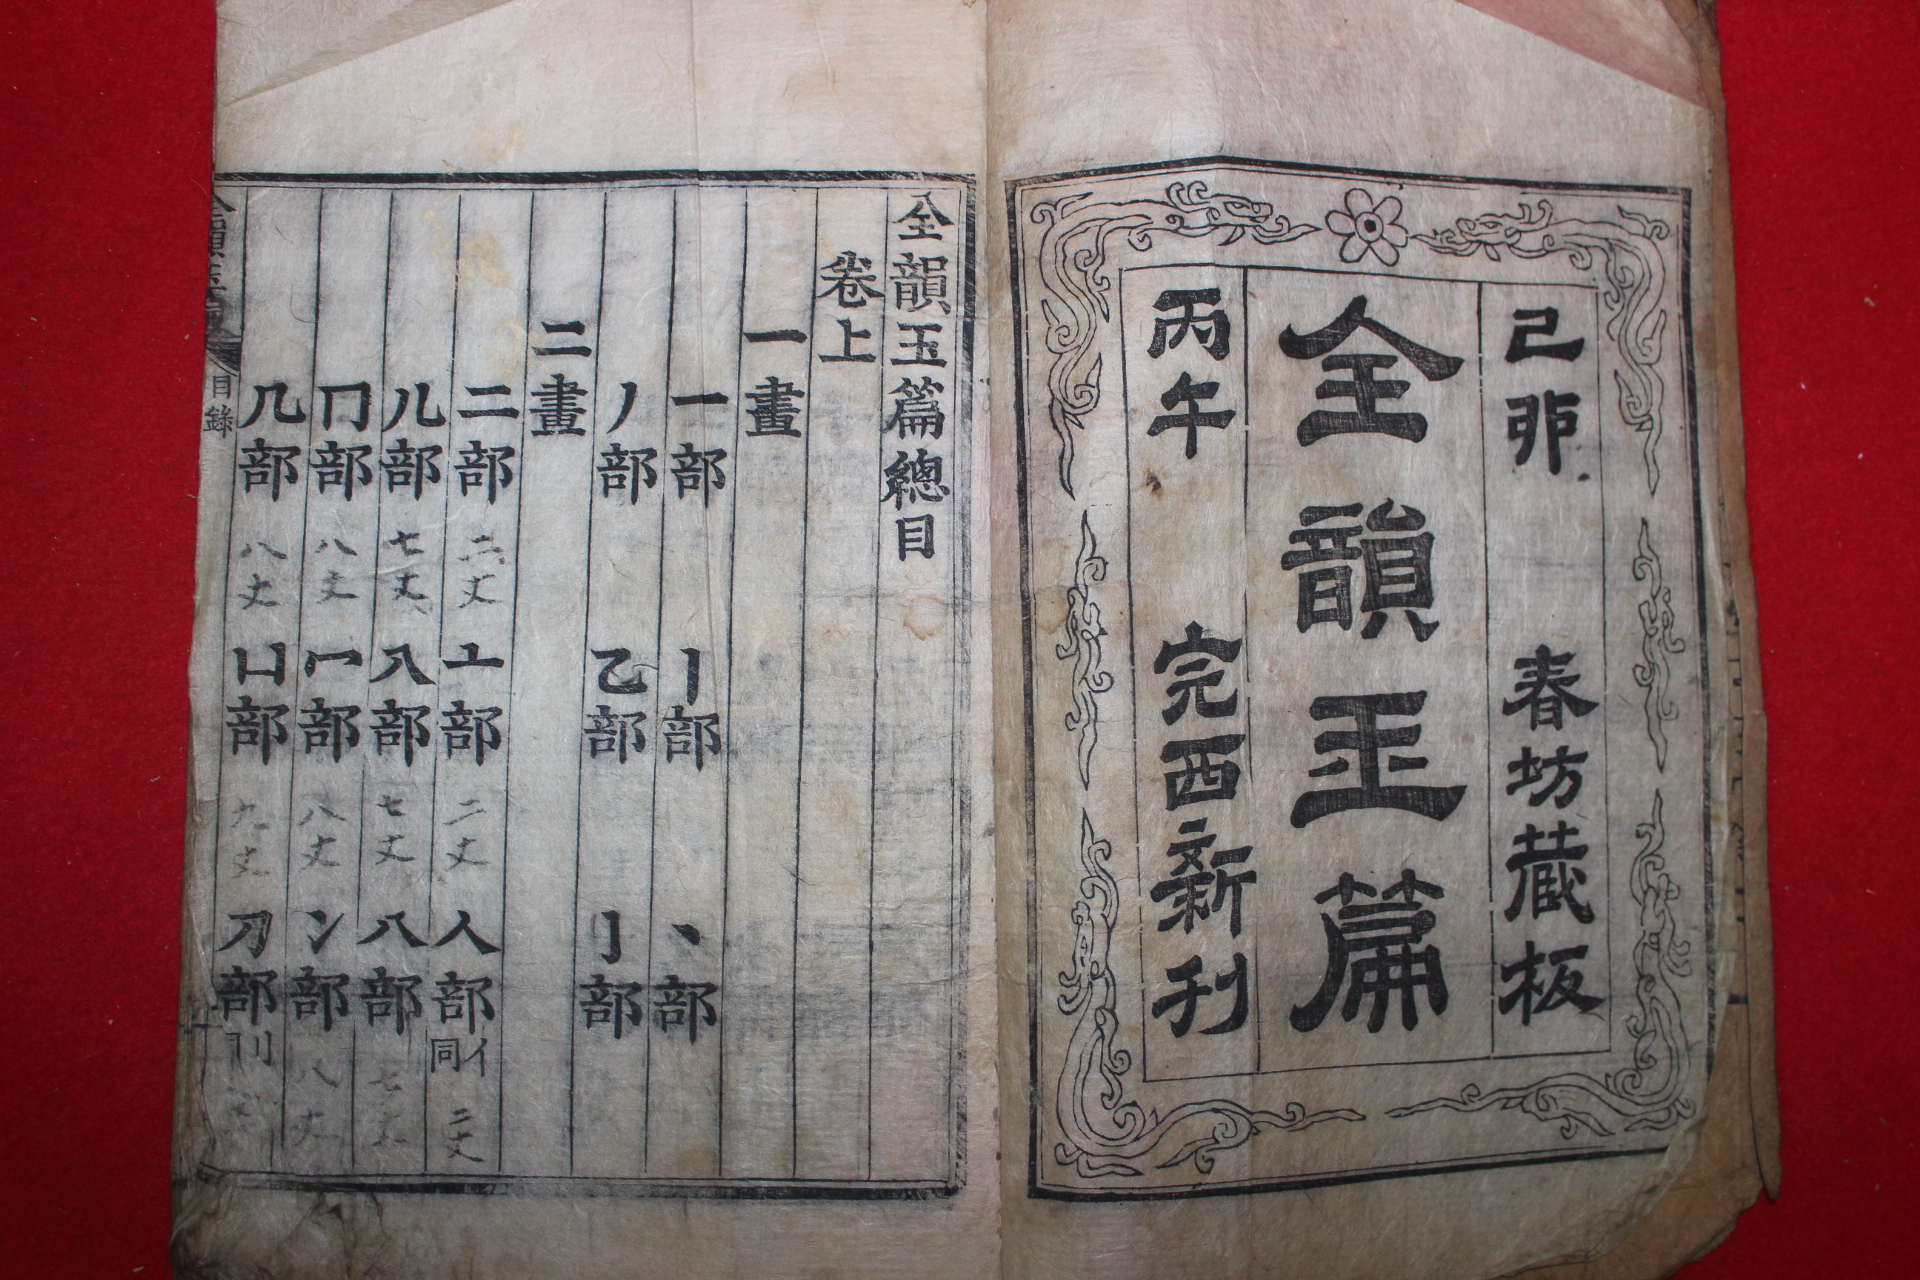 己卯 春坊蔵板
全韻玉篇
丙午 完西新刊
全韻玉篇總目
卷上
一畫
一部 丨部 丶部
丿部 乙部 亅部
二畫
二部 二丈 亠部 二丈 人部 亻同 二丈
儿部 七丈 入部 七丈 八部
冂部 八丈 冖部 八丈 冫部 八丈
几部 八丈 凵部 九丈 刀部
目錄